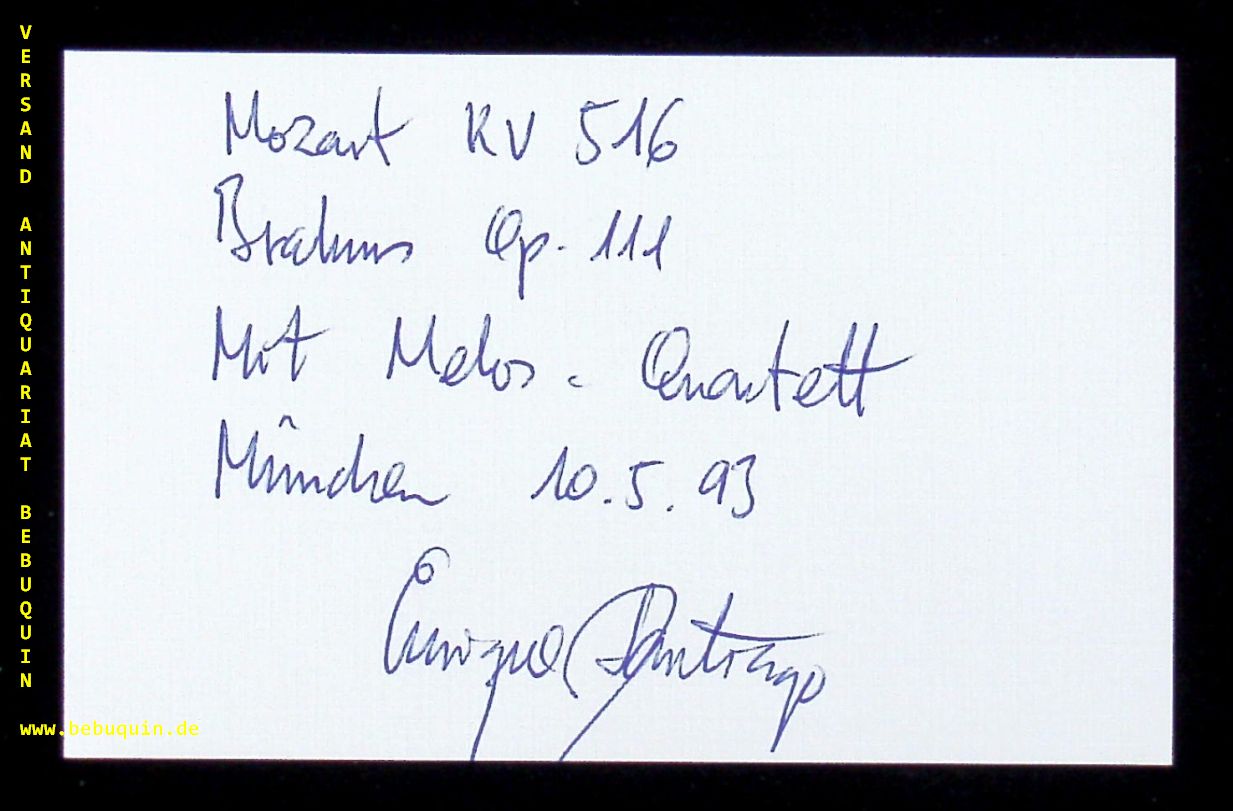 VERSAND ANTIQUARIAT BEBUQUIN
Mozart KV 516
Brahms Op. 111
Mit Melos - Quartett
München 10.5.93
Enrique Santiago
www.bebuquin.de